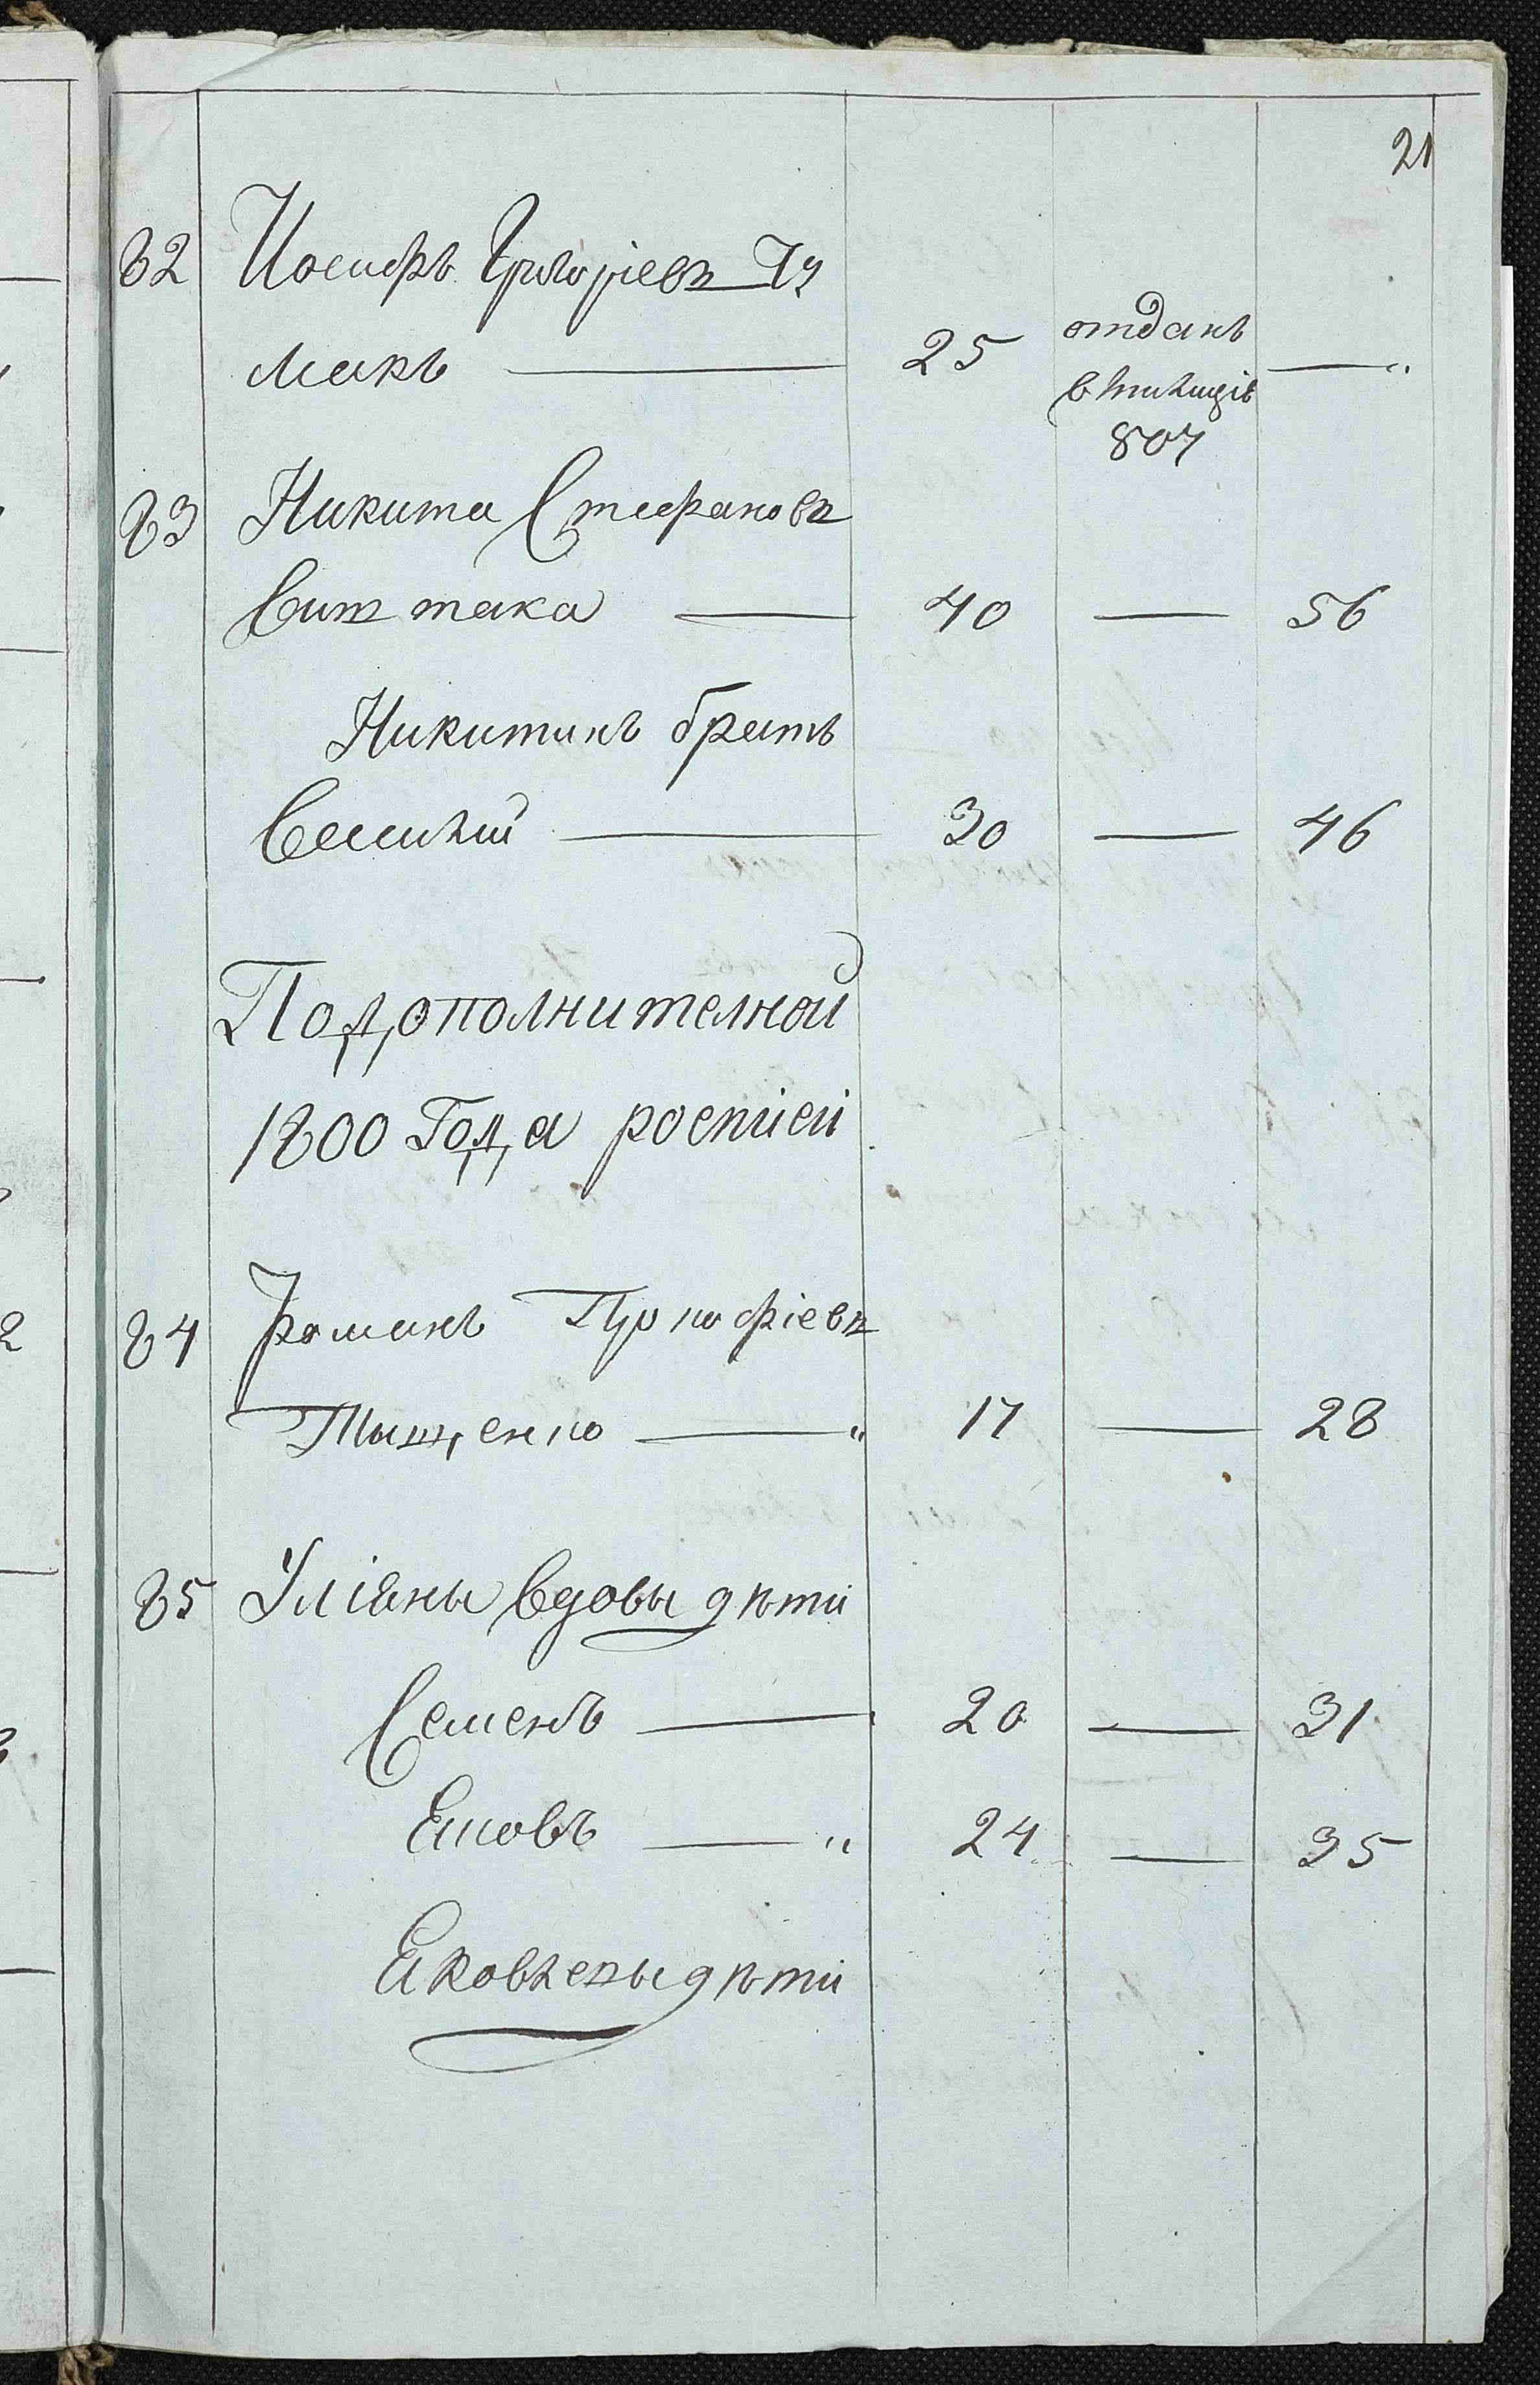 21
82 Иосифъ Григоріевъ Чу
макъ 25 отданъ
в милицію
807
83 Никита Стефановъ
Свитака 40 — 56
Никитинъ братъ
Василий 30 — 46
По дополнителной
1800 Года ровизіей
84 Романъ Прокофіевъ
Тищенко — " 17 — 28
85 Уліяны вдовы дѣти
Семенъ — 20 — 31
Яковъ — " 24 — 35
Яковлевы дѣти